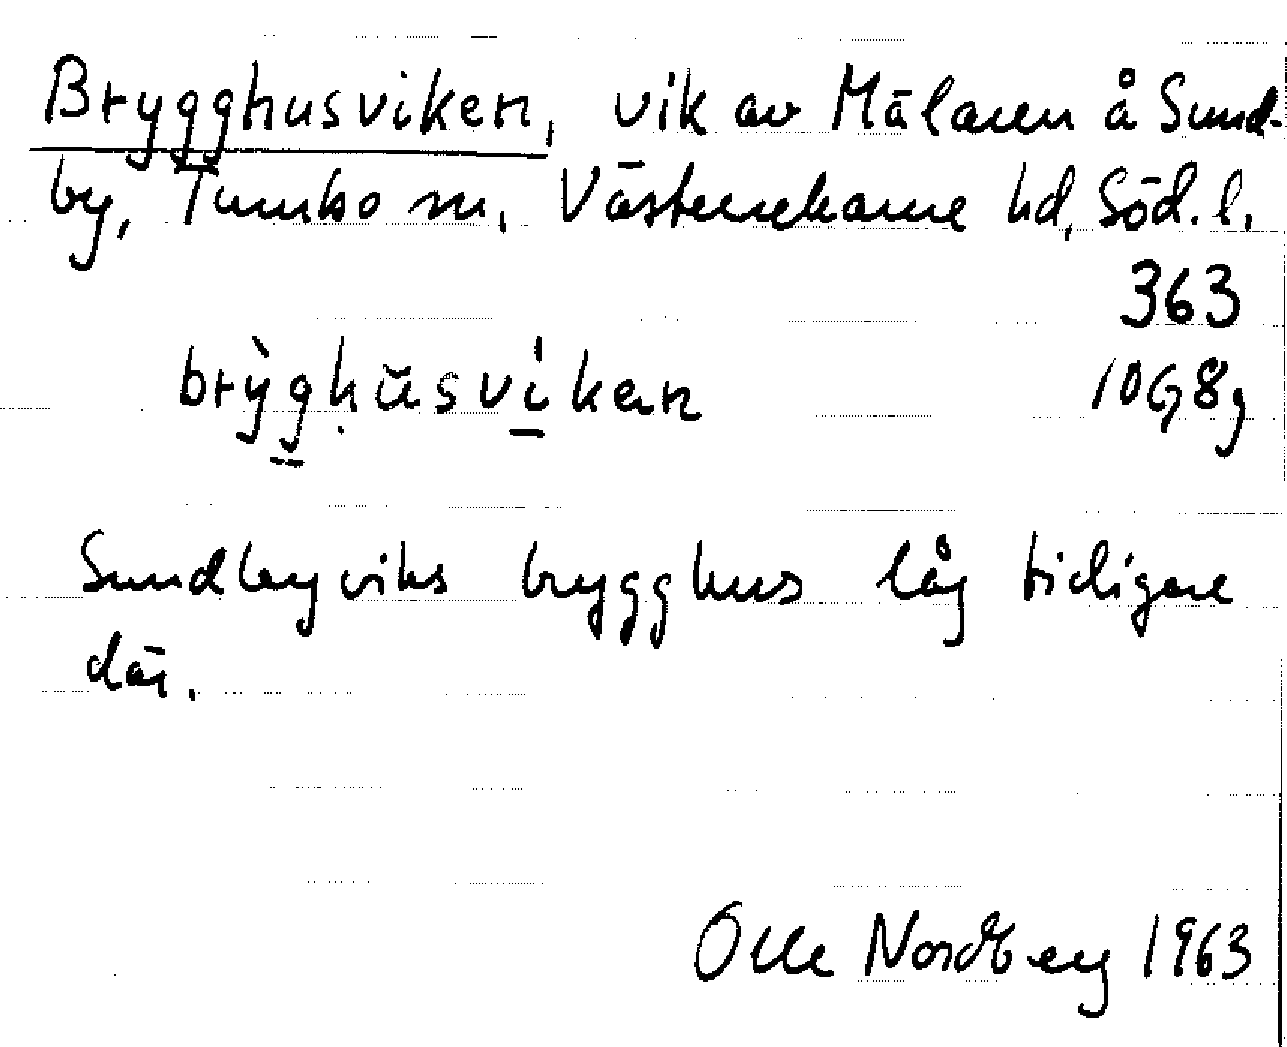 Brygghusviken, vik av Mälaren å Sund-
by, Tumbo sn, Västerrekarne hd, Söd. l.
363
brỳgḥŭsvíken 10G8g
Sundbyviks brygghus låg tidigare
där.
Olle Nordberg 1963